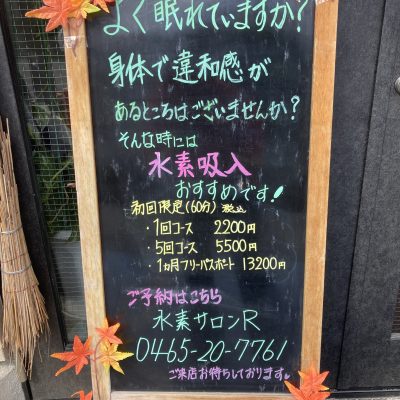 よく眠れていますか?
身体で違和感が
あるところはございませんか?
そんな時には
水素吸入
おすすめです!
初回限定(60分) 税込
・1回コース 2200円
・5回コース 5500円
・1ヵ月フリーパスポート 13200円
ご予約はこちら
水素サロンR
0465-20-7761
ご来店お待ちしております。